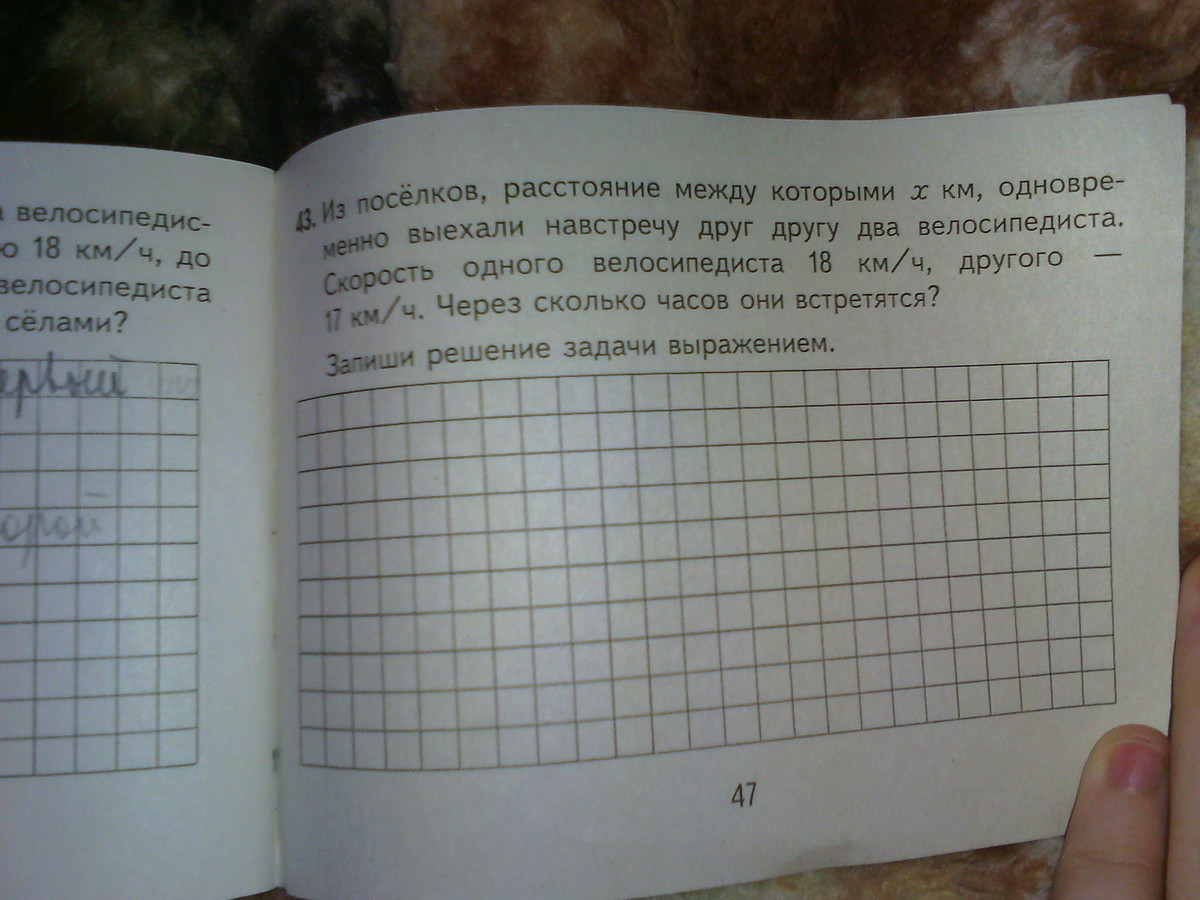 велосипедис-
18 км/ч, до
велосипедиста
сёлами?
43. Из посёлков, расстояние между которыми x км, одновре-
менно выехали навстречу друг другу два велосипедиста.
Скорость одного велосипедиста 18 км/ч, другого —
17 км/ч. Через сколько часов они встретятся?
Запиши решение задачи выражением.
47